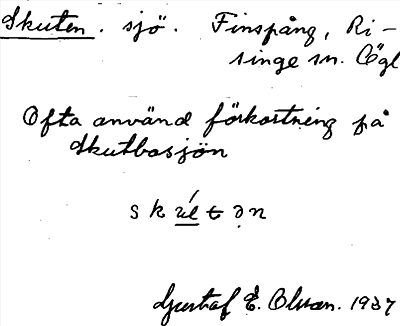 Skuten. sjö. Finspång, Ri-
singe sn. Ögl
Ofta använd förkortning på
Skutbosjön
skútən
Gustaf E. Olsson. 1937